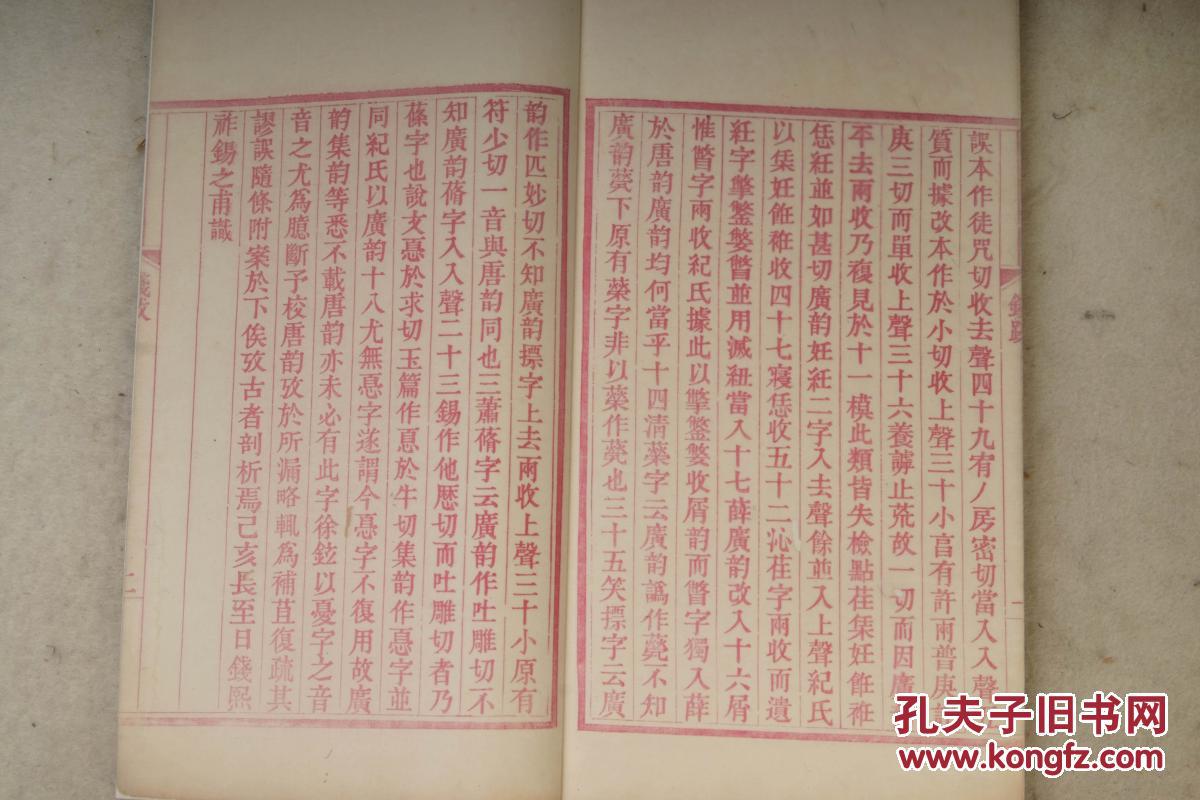 誤本作徒咒切收去聲四十九宥ノ房密切當入入聲
質而據改本作於小切收上聲三十小亯有許兩普庚
庚三切而單收上聲三十六養謼止荒故一切而因廣
平去兩收乃複見於十一模此類皆失檢點荏栠妊飪袵
恁紝並如甚切廣韵妊紝二字入去聲餘並入上聲紀氏
以栠妊飪袵收四十七寢恁收五十二沁荏字兩收而遺
紝字㨼並用滅紐當入十七薛廣韵改入十六屑
惟瞥字兩收紀氏據此以收屑韵而瞥字獨入薛
於唐韵廣韵均何當乎十四清藥字云廣韵譌作薨不知
廣韵薨下原有藥字非以藥作薨也三十五笑摽字云廣
韵作匹妙切不知廣韵摽字上去兩收上聲三十小原有
符少切一音與唐韵同也三蕭脩字云廣韵作吐雕切不
知廣韵脩字入入聲二十三錫作他歷切而吐雕切者乃
蓧字也說文惪於求切玉篇作惪於牛切集韵作惪字並
同紀氏以廣韵十八尤無惪字遂謂今惪字不復用故廣
韵集韵等悉不載唐韵亦未必有此字徐鉉以憂字之音
音之尤爲臆斷予校唐韵攷於所漏略輒爲補苴復疏其
謬誤隨條附案於下俟攷古者剖析焉己亥長至日錢熙
祚錫之甫識
錢跋
一
二
孔夫子旧书网
www.kongfz.com